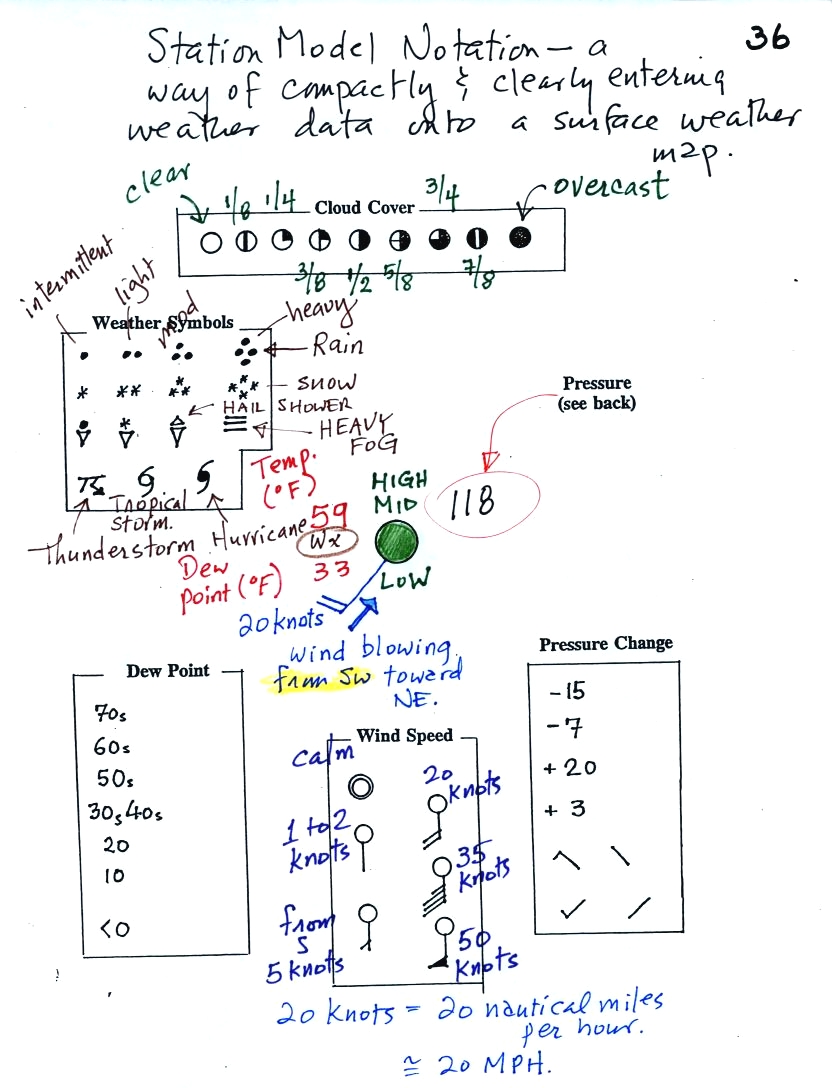 36
Station Model Notation – a
way of compactly & clearly entering
weather data onto a surface weather
map.
clear
1/8 1/4
3/4
overcast
Cloud Cover
3/8 1/2 5/8
7/8
intermittent
light
mod
heavy
Weather Symbols
Rain
SNOW
HAIL SHOWER
HEAVY
FOG
Tropical
Storm.
Thunderstorm
Hurricane
Pressure
(see back)
118
Temp.
(°F)
59
Wx
33
Dew
Point (°F)
HIGH
MID
LOW
20 knots
wind blowing
from SW toward
NE.
Dew Point
70s
60s
50s
30s40s
20
10
<0
Wind Speed
calm
1 to 2
knots
from
S
5 knots
20
knots
35
knots
50
knots
Pressure Change
-15
-7
+20
+3
20 knots = 20 nautical miles
per hour.
≅ 20 MPH.